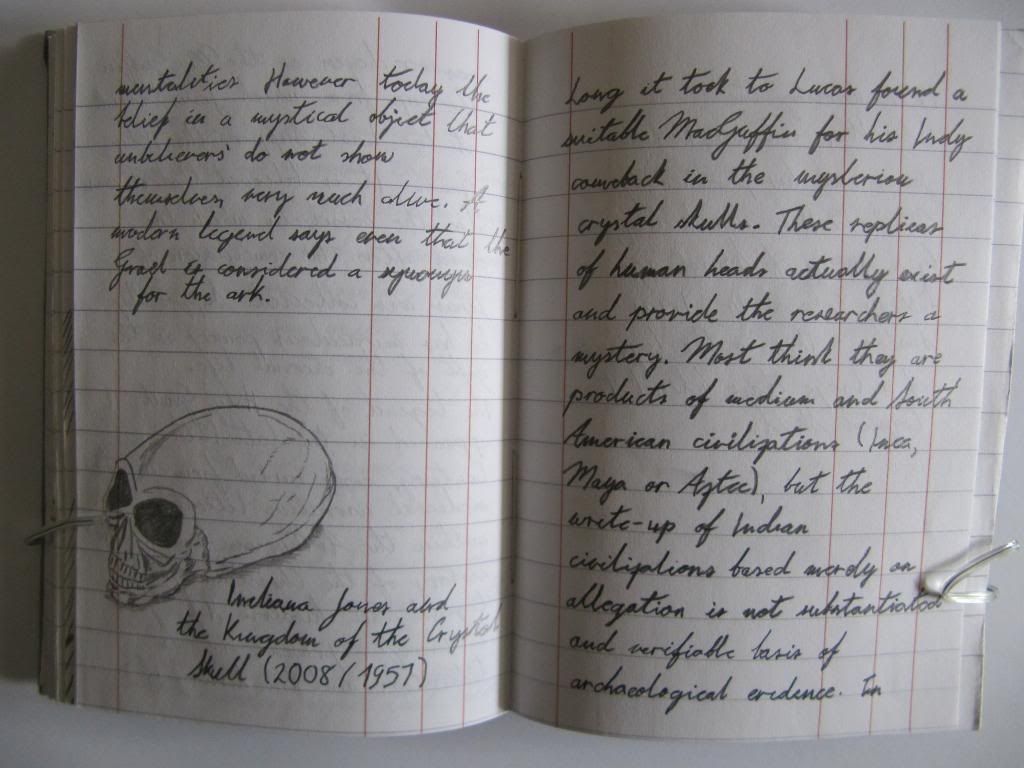 mentalities However today the
belief in a mystical object that
unbelievers do not show
themselves very much alive. A
modern legend says even that the
Grael is considered a synonym
for the ark.
Indiana Jones and
the Kingdom of the Crystal
Skull (2008/1957)
Long it took to Lucas found a
suitable MacGuffin for his Indy
comeback in the mysterious
crystal skulls. These replicas
of human heads actually exist
and provide the researchers a
mystery. Most think they are
products of medium and South
American civilizations (Inca,
Maya or Aztec), but the
write-up of Indian
civilizations based merely on
allegation is not substantiated
and verifiable basis of
archaeological evidence. In